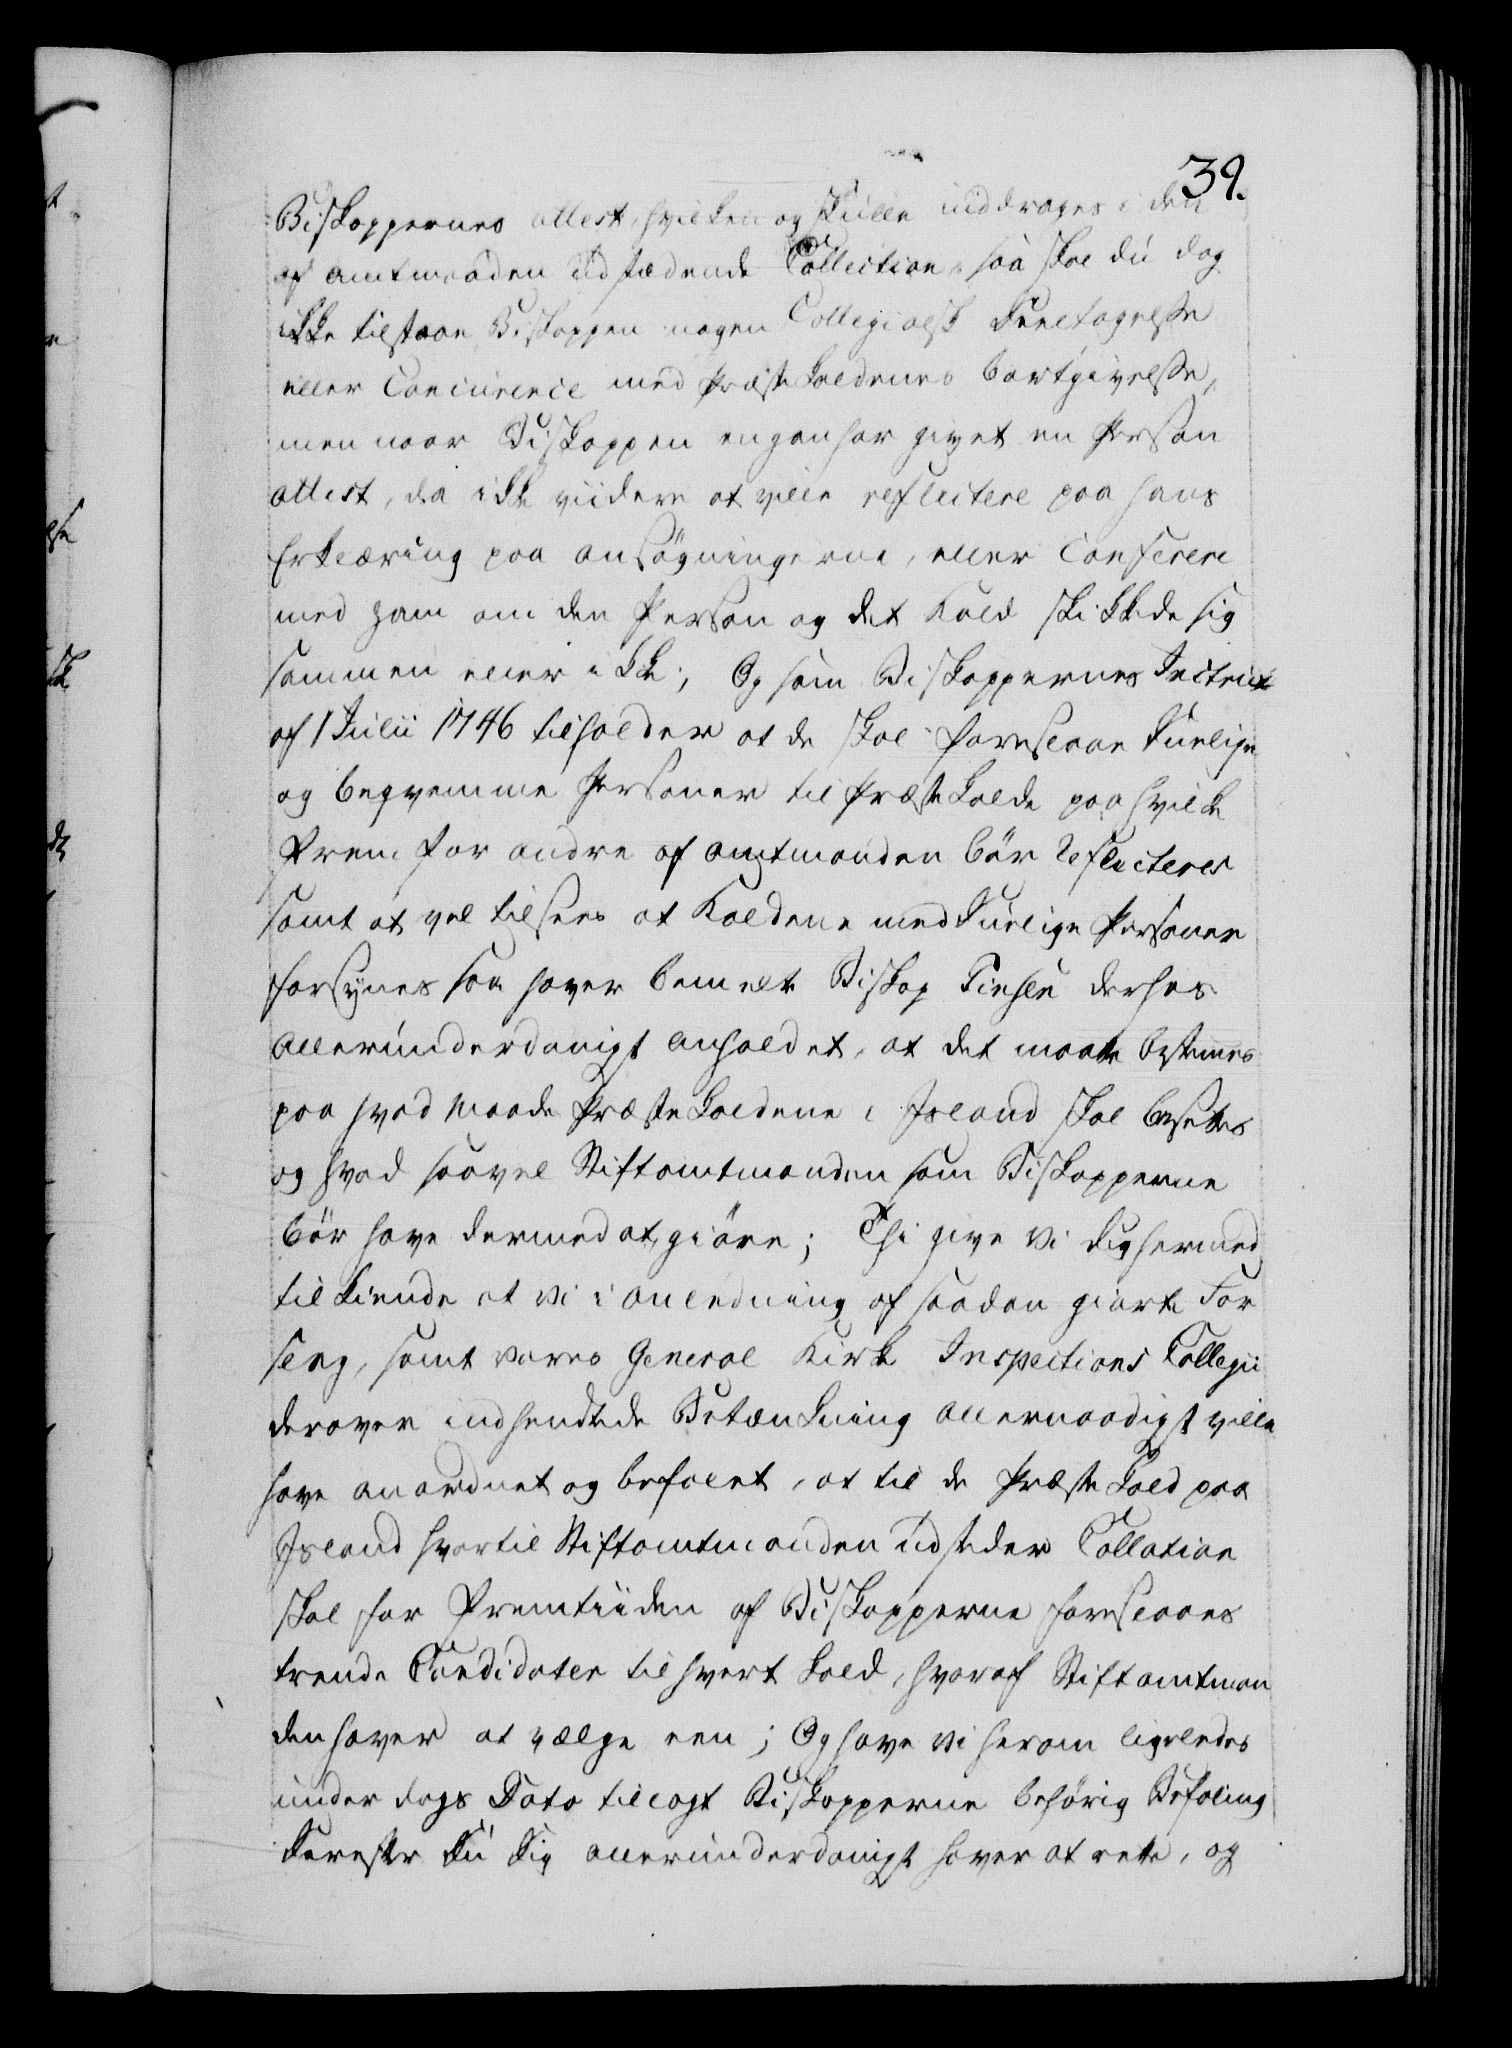 39.
Biskoppernes attest, hvilken og skulle inddrages i den
af amtmanden udstædende Collection, saa skal du dog
ikke tilstaae Biskoppen nogen Collegialsk Deeltagelse
eller Concurence med Præste Kaldenes bortgivelse,
men naar Biskoppen engan har givet en Person
attest, da ikke viidere at ville reflectere paa hans
Erklæring paa ansøgningerne, eller Conferere
med ham om den Person og det Kald skikkede sig
sammen eller ikke; Og som Biskoppernes Instrux
af 1 Julii 1746 tilholder at de skal foreslaae Duelige
og beqvemme Personer til Præste Kalde paa hvilke
frem for andre af amtmanden bör Reflecteres
samt at vel tilsees at Kaldene med Duelige Personer
forsÿnes saa haver bemelte Biskop Finsen derhos
allerunderdanigst anholdet, at det maatte bestemmes
paa hvad Maade Præste Kaldene i Island skal besettes
og hvad saavel Stiftamtmanden som Biskopperne
bör have dermed at giöre; Thi give vi dig hermed
tilkiende at vi i anledning af saadan giorte Fore
leng, samt vores General Kirke Inspections Collegii
derover indsendte Betænkning allernaadigst ville
have anordnet og befalet, at til de Præste Kald paa
Island hvortil Stiftamtmanden udsteder Collation
skal for Fremtiiden af Biskopperne foreslaaes
trende Candidater til hvert Kald, hvoraf Stiftamtman
den haver at vælge een; Og have vi herom ligeledes
under dags Dato tillagt Biskopperne behørig Befaling
Derefter Du Dig allerunderdanigst haver at rette, og